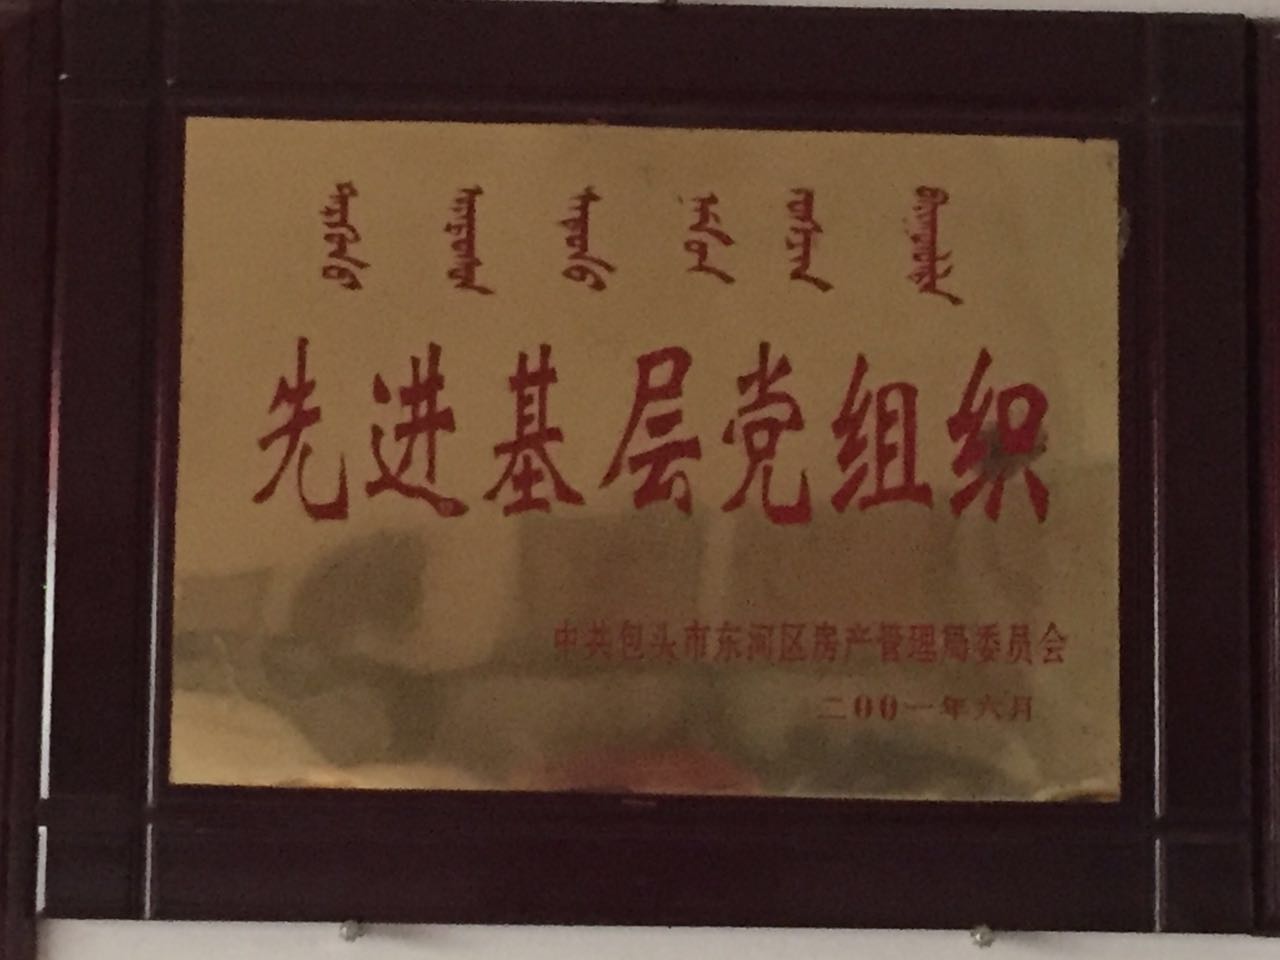 先进基层党组织
中共包头市东河区房产管理局委员会
二00一年六月